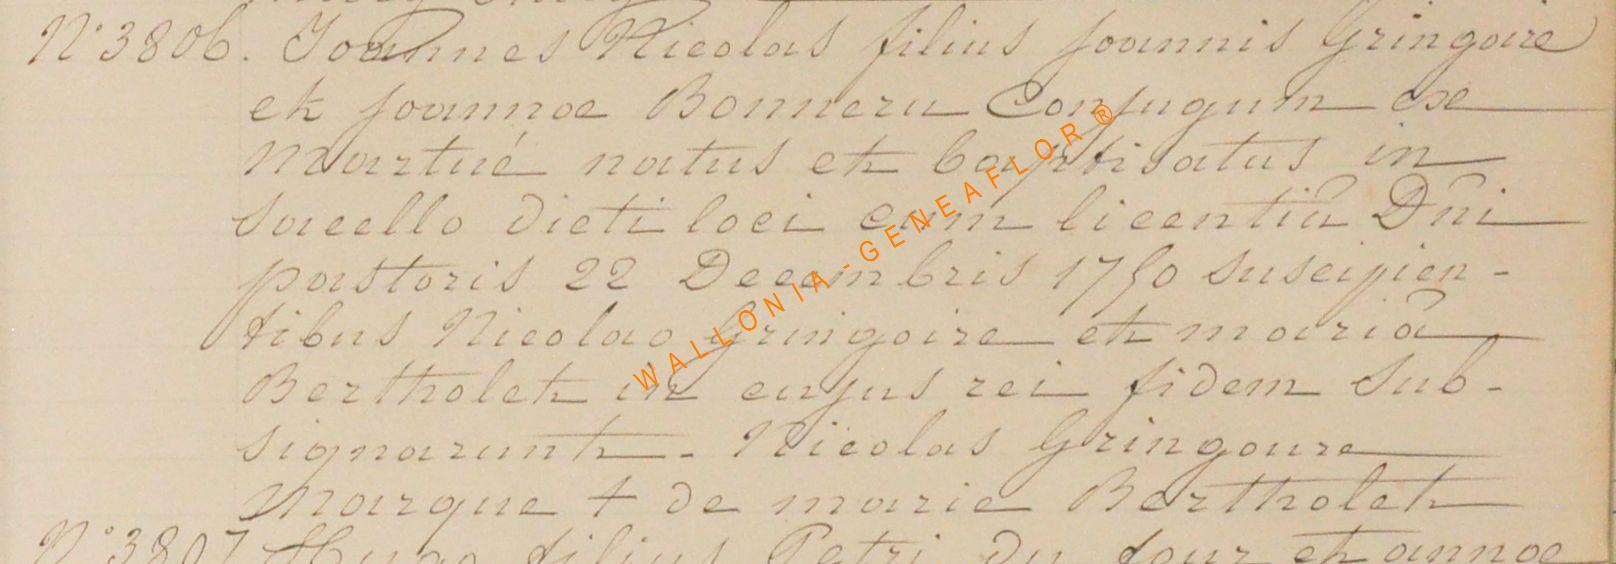 N° 3806. Joannes Nicolas filius joannis Gringoire
et joannae Bonneru Conjugum ex
Martué natus et baptisatus in
sacello dicti loci cum licentiâ Dñi
pastoris 22 Decembris 1750 suscipien-
tibus Nicolao Gringoire et mariâ
Bertholet in cujus rei fidem sub-
signarunt - Nicolas Gringoire
Marque + de marie Bertholet
N° 3807 Hugo filius Petri du four et annae
WALLONIA-GENEAFLOR ®